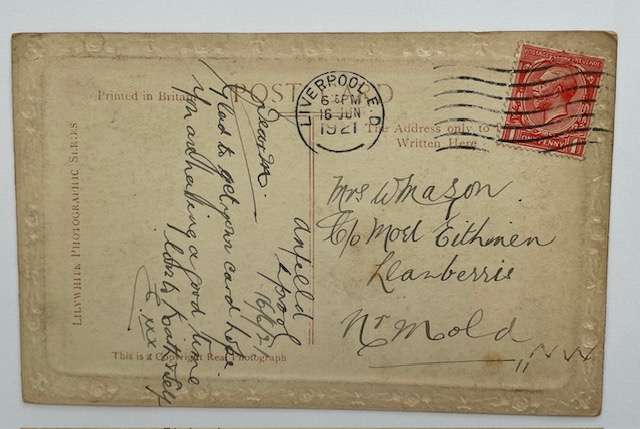 Printed in Britain
POST CARD
LIVERPOOL E.D
6 15 PM
16 JUN
1921
The Address only to
Written Here
LILYWHITE PHOTOGRAPHIC SERIES
POSTAGE REVENUE
ONE PENNY
Anfield
L'pool
16/6/21
Dear M.
Glad to get your card hope
you are having a good time
Love to both
xxx
Mrs W Mason
C/o Moel Eithinen
Llanberris
Nr Mold
N W
This is a Copyright Real Photograph